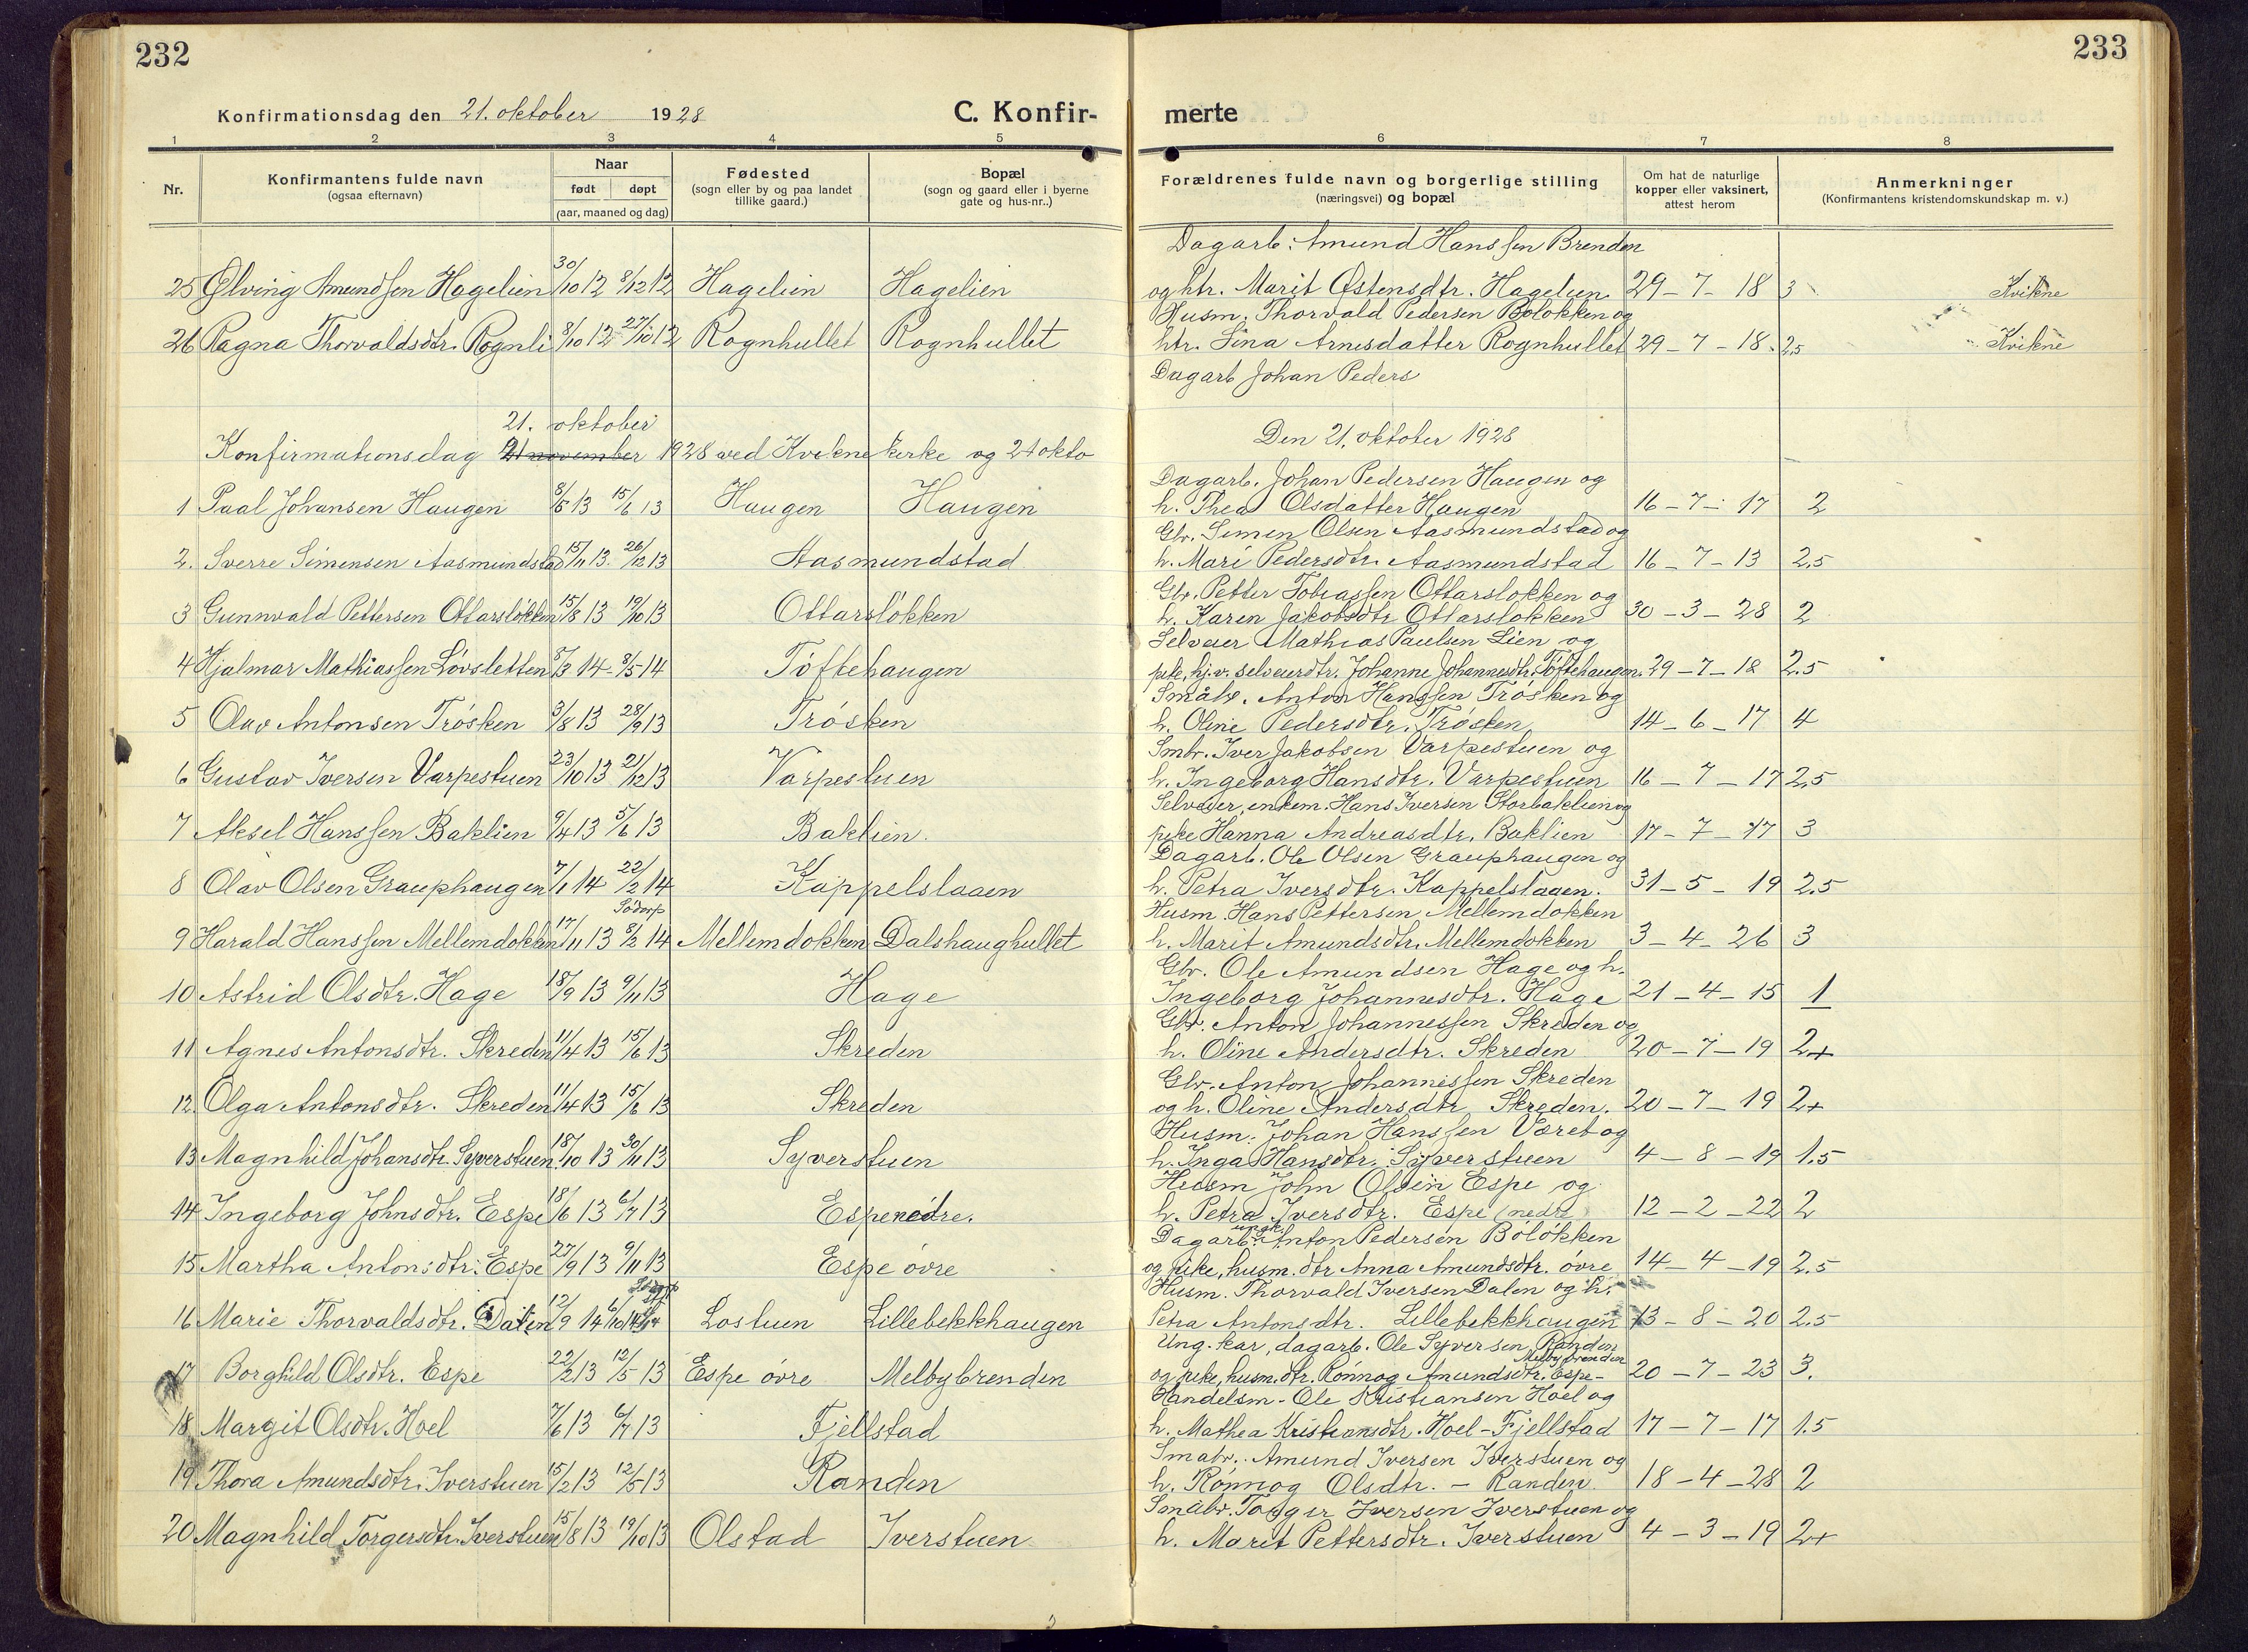 232
Konfirmationsdag den 21. oktober 1928
C. Konfir-
1 2 3 4 5
Nr.
Konfirmantens fulde navn
(ogsaa efternavn)
Naar
født døpt
(aar, maaned og dag)
Fødested
(sogn eller by og paa landet
tillike gaard.)
Bopæl
(sogn og gaard eller i byerne
gate og hus-nr..)
25 Ølving Amundsen Hagelien 30/10 12 8/12 12 Hagelien Hagelien
26 Ragna Thorvaldsdtr. Rognli 8/10 12 27/10 12 Rognhullet Rognhullet
21. oktober
Konfirmationsdag 21 november 1928 ved Kvikne kirke og 21 okto
1 Paal Johansen Haugen 8/5 13 15/6 13 Haugen Haugen
2. Sverre Simensen Aasmundstad 15/11 13. 26/12 13 Aasmundstad
3 Gunnvald Pettersen Ottarsløkken 15/8 13 19/10 13 Ottarsløkken
4 Hjalmar Mathiassen Løvsletten 8/3 14 - 8/5 14 Tøftehaugen
5 Olav Antonsen Trøsken 3/8 13 28/9 13 Trøsken
6 Gustav Iversen Varpestuen 23/10 13 21/12 13 Varpestuen
7 Aksel Hanssen Baklien 9/4 13 5/6 13 Baklien.
8 Olav Olsen Grauphaugen 7/1 14 22/2 14 Kappelslaaen
Södorp
9 Harald Hanssen Mellemdokken 17/11 13 8/2 14 Mellemdokken Dalshaughullet
10 Astrid Olsdtr. Hage 18/9 13 9/11 13 Hage
11 Agnes Antonsdtr. Skreden 11/4 13 15/6 13 Skreden
12. Olga Antonsdtr. Skreden 11/4 13 15/6 13 Skreden
13 Magnhild Johansdtr. Syverstuen 18/10 13 30/11 13 Syverstuen
14 Ingeborg Johnsdtr. Espe 18/6 13 6/7 13 Espe nedre.
15 Martha Antonsdtr. Espe 27/9 13 9/11 13 Espe øvre
16 Marie Thorvaldsdtr. Dalen 12/9 14 Lostuen Lillebekkhaugen
17 Borghild Olsdtr. Espe 22/2 13 12/5 13 Espe øvre Melbybrenden
18 Margit Olsdtr. Hoel 7/6 13 6/7 13 Fjellstad
19 Thora Amundsdtr. Iverstuen 15/2 13 12/5 13 Randen
20 Magnhild Torgersdtr. Iverstuen 15/8 13 19/10 13 Olstad Iverstuen
233
merte
6 7 8
Forældrenes fulde navn og borgerlige stilling
(næringsvei) og bopæl
Om hat de naturlige
kopper eller vaksinert,
attest herom
Anmerkninger
(Konfirmantens kristendomskundskap m. v.)
Dagarb. Amund Hanssen Brenden
og htr. Marit Østensdtr. Hagelien 29 - 7 - 18 3 Kvikne
Husm. Thorvald Pedersen Bøløkken og
htr. Lina Arnesdatter Rognhullet 29 - 7 - 18. 2.5 Kvikne
Dagarb Johan Peders
Den 21. oktober 1928
Dagarb. Johan Pedersen Haugen og
h. Thea Olsdatter Haugen 16 - 7 - 17 2
Gbr. Simen Olsen Aasmundstad og
h. Mari Pedersdtr. Aasmundstad 16 - 7 - 13 2.5
Gbr. Petter Tobiassen Ottarsløkken og
h. Karen Jakobsdtr Ottarsløkken 30 - 3 - 28 2
Selveier Mathias Paulsen Lien og
pike, hj.v. selveierdtr. Johanne Johannesdtr. Tøftehaugen. 29 - 7 - 18 2.5
Småbr. Anton Hanssen Trøsken og
h. Oline Pedersdtr. Trøsken 14 - 6 - 17 4
Smbr. Iver Jakobsen Varpestuen og
h. Ingeborg Hansdtr. Varpestuen 16 - 7 - 17 2.5
Selveier, enkem. Hans Iversen Storbaklien og
pike Hanna Andreasdtr. Baklien 17 - 7 - 17 3
Dagarb. Ole Olsen Grauphaugen og
h. Petra Iversdtr. Kappelslaaen. 31 - 5 - 19 2.5
Husm. Hans Pettersen Mellemdokken
h. Marit Amundsdtr. Mellemdokken 3 - 4 - 26 3
Gbr. Ole Amundsen Hage og h.
Ingeborg Johannesdtr. Hage 21 - 4 - 15 1
Gbr. Anton Johannessen Skreden og
h. Oline Andersdtr. Skreden 20 - 7 - 19 2+
Gbr. Anton Johannessen Skreden
og h. Oline Andersdtr Skreden. 20 - 7 - 19 2+
Husm. Johan Hanssen Været og
h. Inga Hansdtr. Syverstuen 4 - 8 - 19 1.5
Husm John Olsen Espe og
h. Petra Iversdtr. Espe (nedre 12 - 2 - 22 2
Dagarb. ungk. Anton Pedersen Bøløkken
og pike, husm. dtr Anna Amundsdtr. øvre 14 - 4 - 19 2.5
Husm. Thorvald Iversen Dalen og h.
Petra Antonsdtr. Lillebekkhaugen 13 - 8 - 20 2.5
Ung-kar, dagarb. Ole Syversen Randen
Melbybrenden
og pike, husm. dtr. Rønnog Amundsdtr. Espe- 20 - 7 - 23 3.
Handelsm. Ole Kristiansen Hoel og
h. Mathea Kristiansdtr. Hoel - Fjellstad 17 - 7 - 17 1.5
Småbr. Amund Iversen Iverstuen og
h. Rønnog Olsdtr. - Randen 18 - 4 - 28 2
Småbr. Torger Iversen Iverstuen og
h. Marit Pettersdtr. Iverstuen 4 - 3 - 19 2+